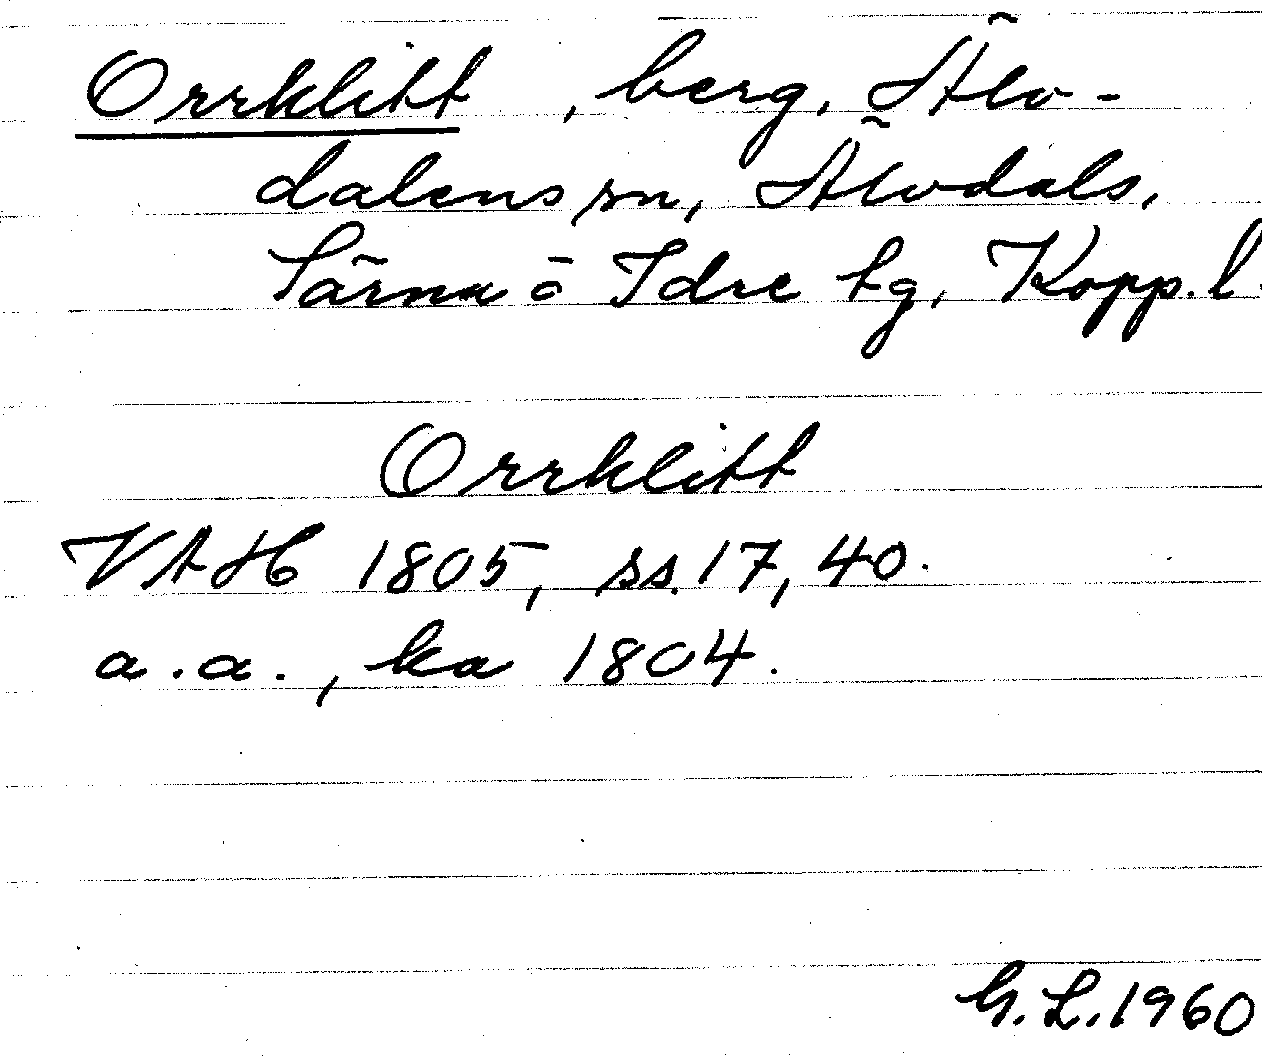 Orrklitt, berg, Älv-
dalens sn, Älvdals,
Särna ö Idre tg, Kopp. l.
Orrklitt
VAH 1805, ss. 17, 40.
a.a., ka 1804.
G.L. 1960